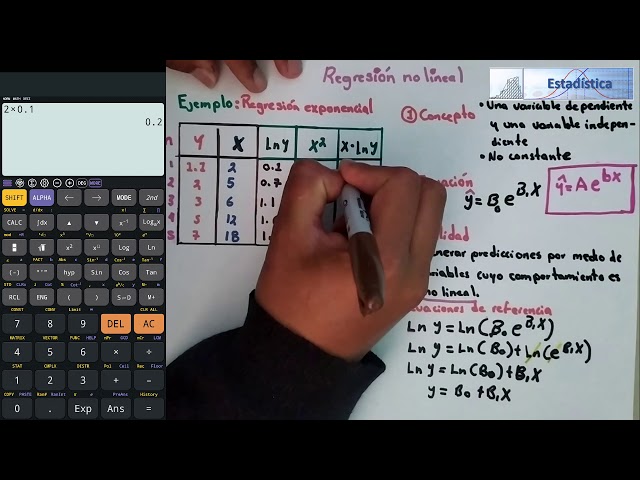 2×0.1
0.2
SHIFT ALPHA MODE 2nd
CALC ∫dx x⁻¹ Logₐx
x² Ln
(-) hyp Sin Cos Tan
RCL ENG ( ) S↔D M+
7 8 9 DEL AC
4 5 6 × ÷
1 2 3 + -
0 . Exp Ans =
Regresión no lineal
Estadística
Ejemplo: Regresión exponencial
n Y X Ln Y X² X·Ln Y
1 1.1 2 0.1
2 2 5 0.7
3 3 6 1.1
4 5 12
5 7 18
① Concepto
• Una variable dependiente
y una variable indepen-
diente
• No constante
uación
ŷ = B₀ e^B₁X
ŷ = A e^bx
lidad
nerar predicciones por medio de
riables cuyo comportamiento es
no lineal.
uaciones de referencia
Ln y = Ln(B₀ e^B₁X)
Ln y = Ln(B₀) + Ln(e^B₁X)
Ln y = Ln(B₀) + B₁X
y = B₀ + B₁X